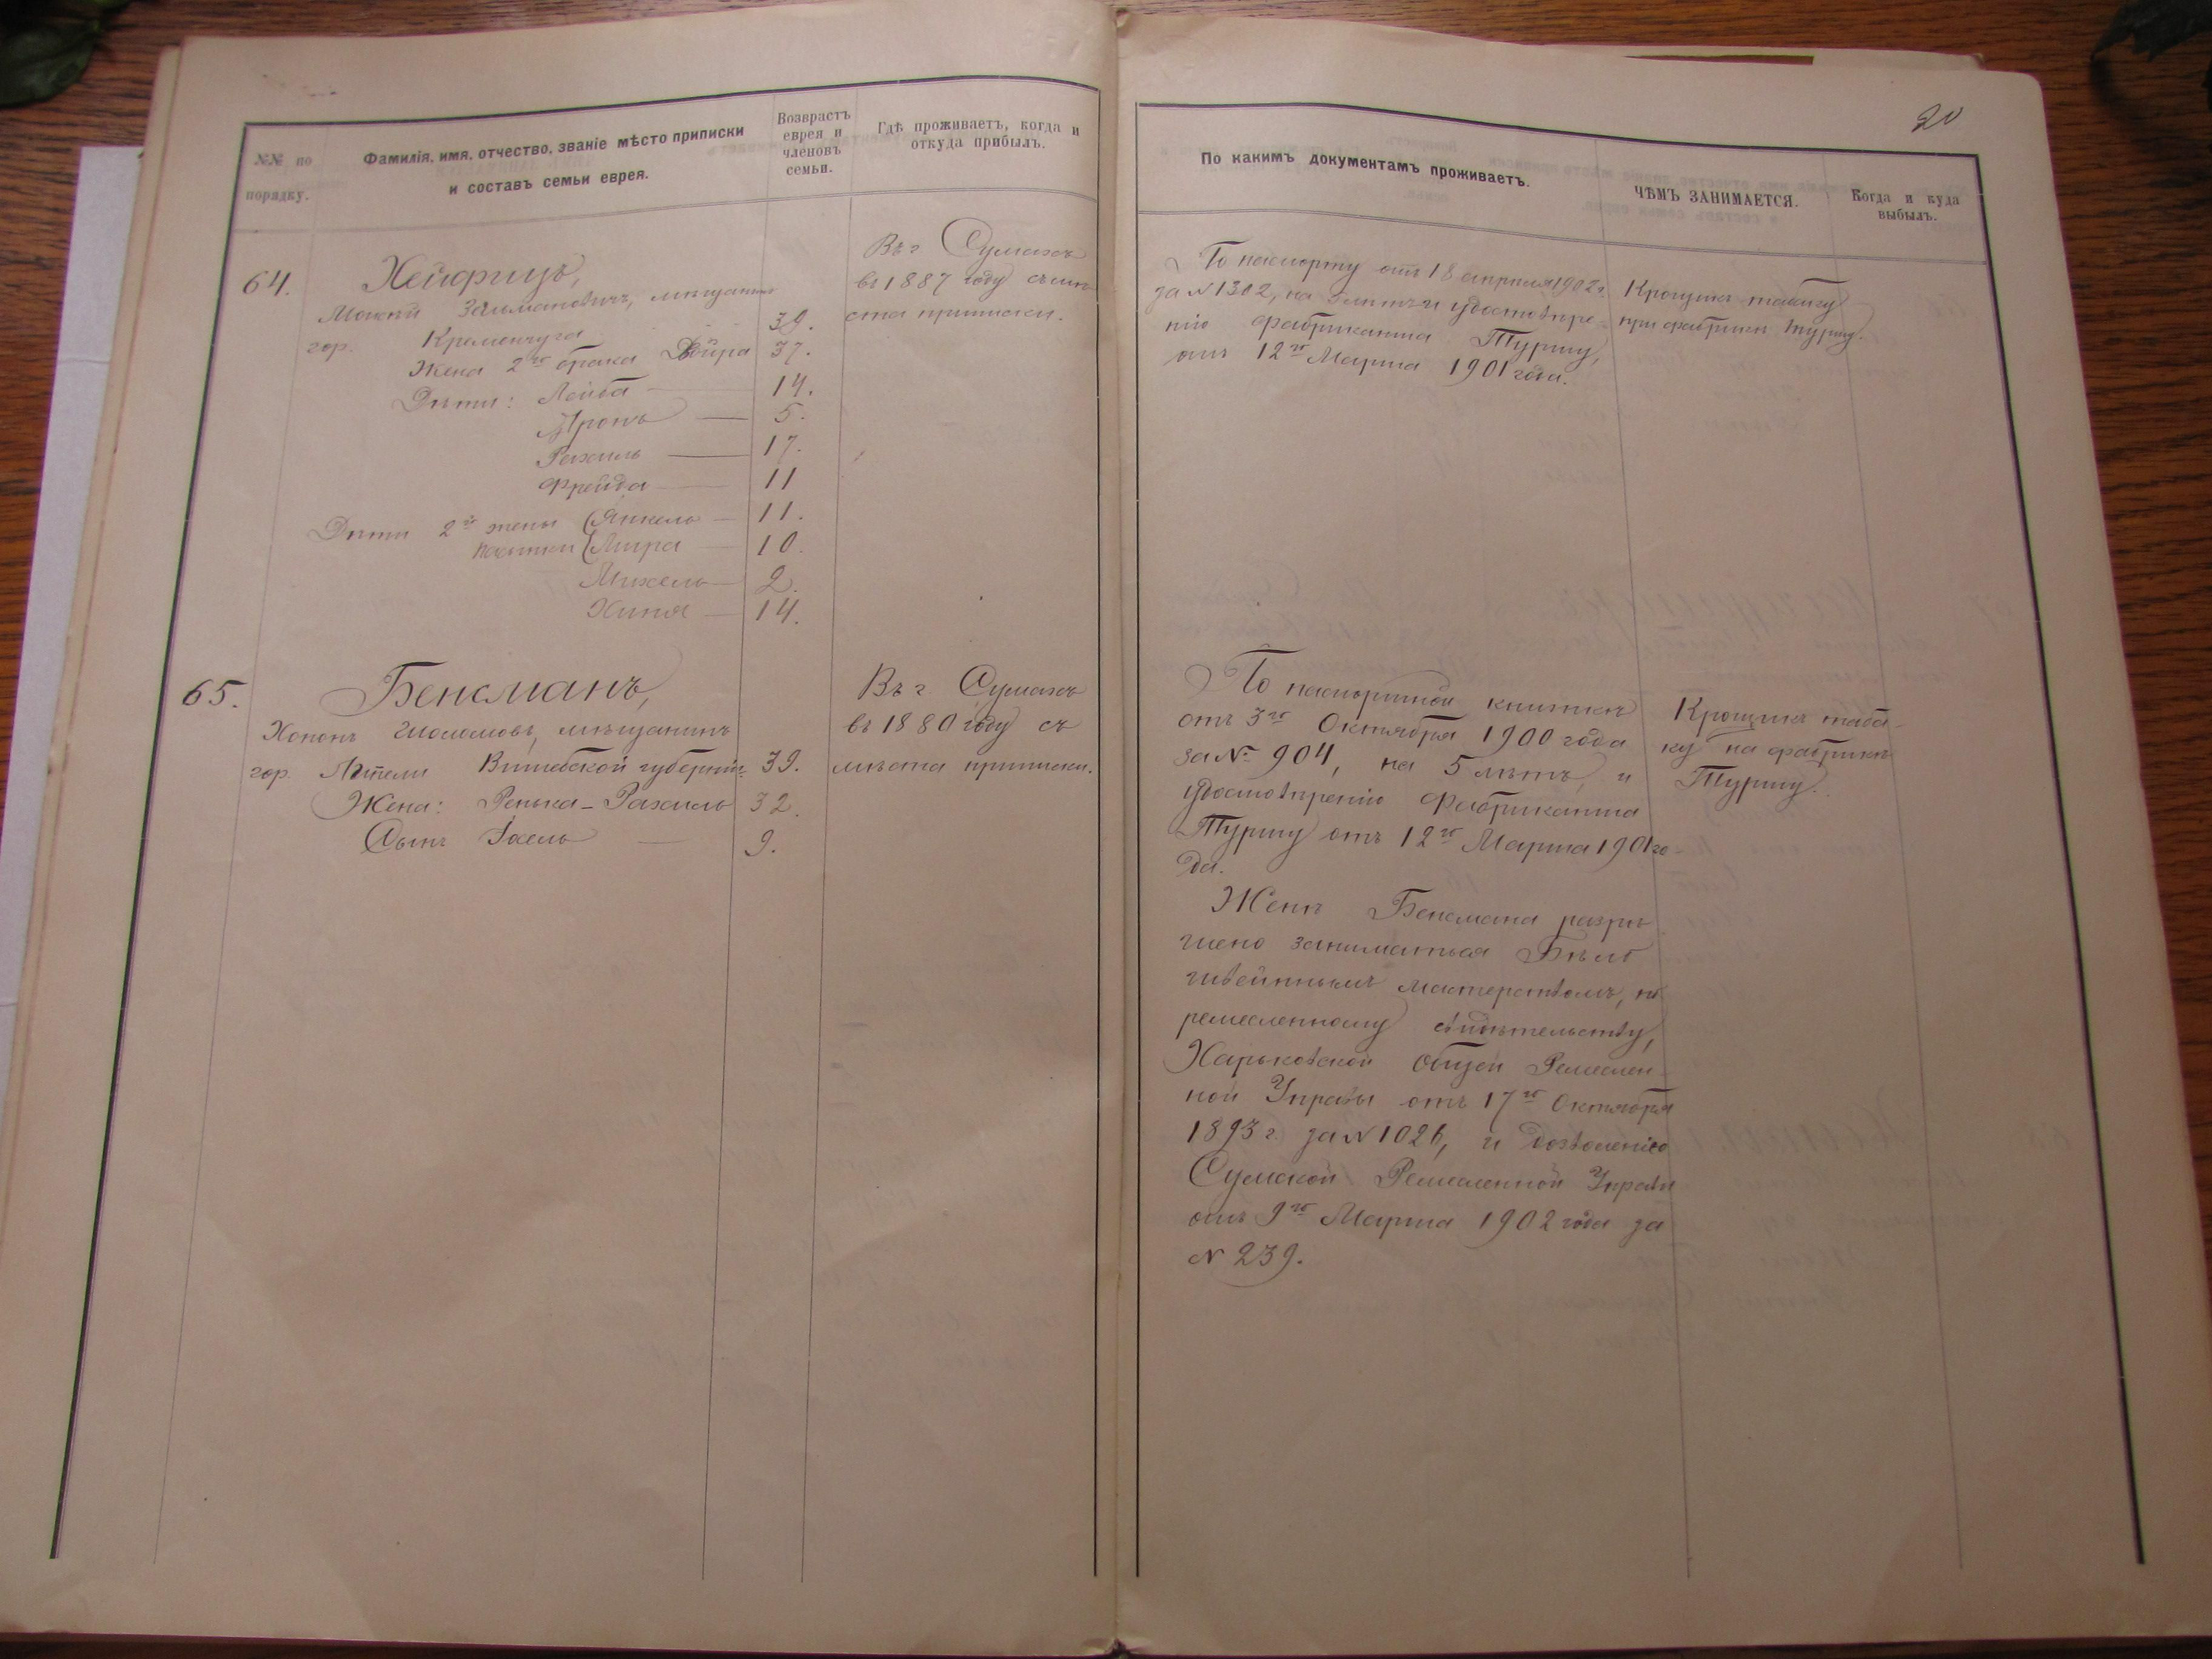 20
№№ по порядку.
Фамилія, имя, отчество, званіе мѣсто приписки
и составъ семьи еврея.
Возврастъ
еврея и
членовъ
семьи.
Гдѣ проживаетъ, когда и
откуда прибылъ.
По какимъ документамъ проживаетъ.
ЧѢМЪ ЗАНИМАЕТСЯ.
Когда и куда
выбылъ.
64.
Хейфицъ,
Залмановичъ, мѣщанинъ
гор. Кременчуга 39.
Жена 2го брака Двойра 37.
Дѣти: Лейба — 14.
Аронъ — 5.
Рахиль — 17.
Фрейда — 11
Дѣти 2й жены (Янкель — 11.
(Мира — 10.
Михель — 2.
Хиня — 14.
Въ г Сумахъ
въ 1887 году съ мѣ
ста приписки.
По паспорту отъ 18 апрѣля 1902 г.
за N 1302, на и удостовѣре
нію фабриканта Турицу,
отъ 12го Марта 1901 года.
Крощикъ табаку
при фабрикѣ Турицу.
65.
Бенсманъ,
мѣщанинъ
гор. Витебской губерніи. 39.
Жена: Ренька-Рахиль 32.
Сынъ — 9.
Въ г. Сумахъ
въ 1880 году съ
мѣста приписки.
По паспортной книжкѣ
отъ 3го Октября 1900 года
за № 904, на 5 лѣтъ, и
удостовѣренію фабриканта
Турицу отъ 12го Марта 1901 го-
да.
Крощикъ таба-
ку на фабрикѣ
Турицу.
Женѣ Бенсмана разрѣ
шено заниматься Бѣло
швейнымъ мастерствомъ, по
ремесленному свидѣтельству,
Харьковской Общей Ремеслен-
ной Управы отъ 17го Октября
1893 г. за N 1026, и дозволенію
Сумской Ремесленной Управы
отъ 9го Марта 1902 года за
N 239.